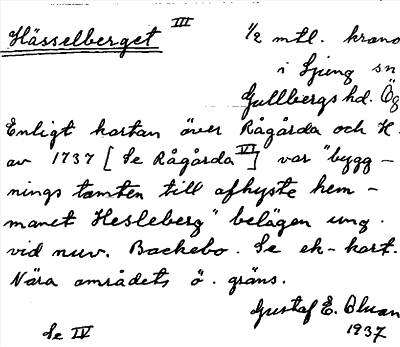 Hässelberget III 1/2 mtl. krono
i Ljung sn
Gullbergs hd. Ög
Enligt kartan över Rågårda och H.
av 1737 [Se Rågårda VI] var "bygg-
nings tomten till afhyste hem-
manet Hesleberg" belägen ung.
vid nuv. Backebo. Se ek-kart.
Nära områdets ö. gräns.
Gustaf E. Bluan
1937
Se IV